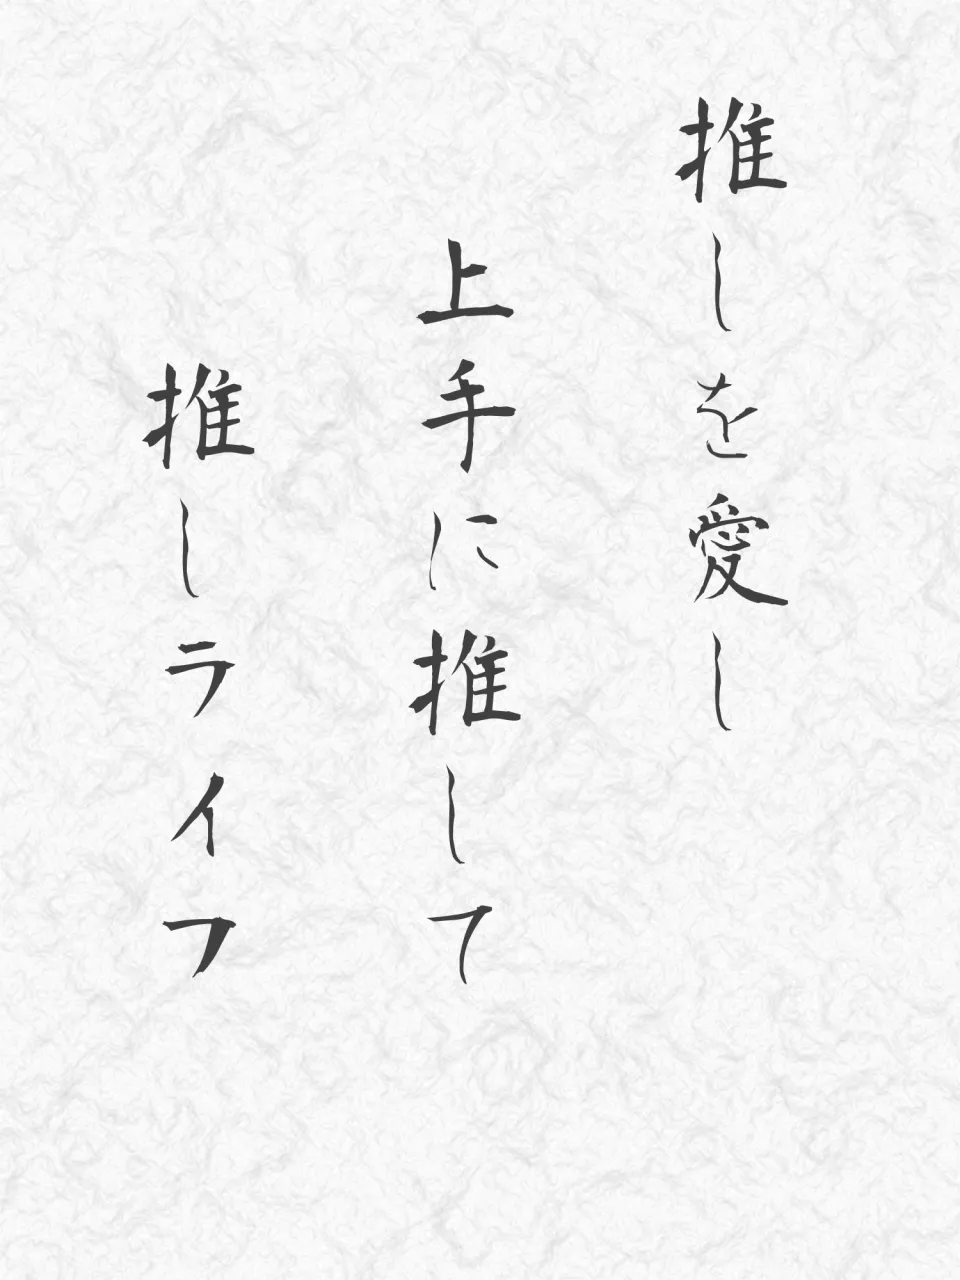 推しを愛し
上手に推して
推しライフ